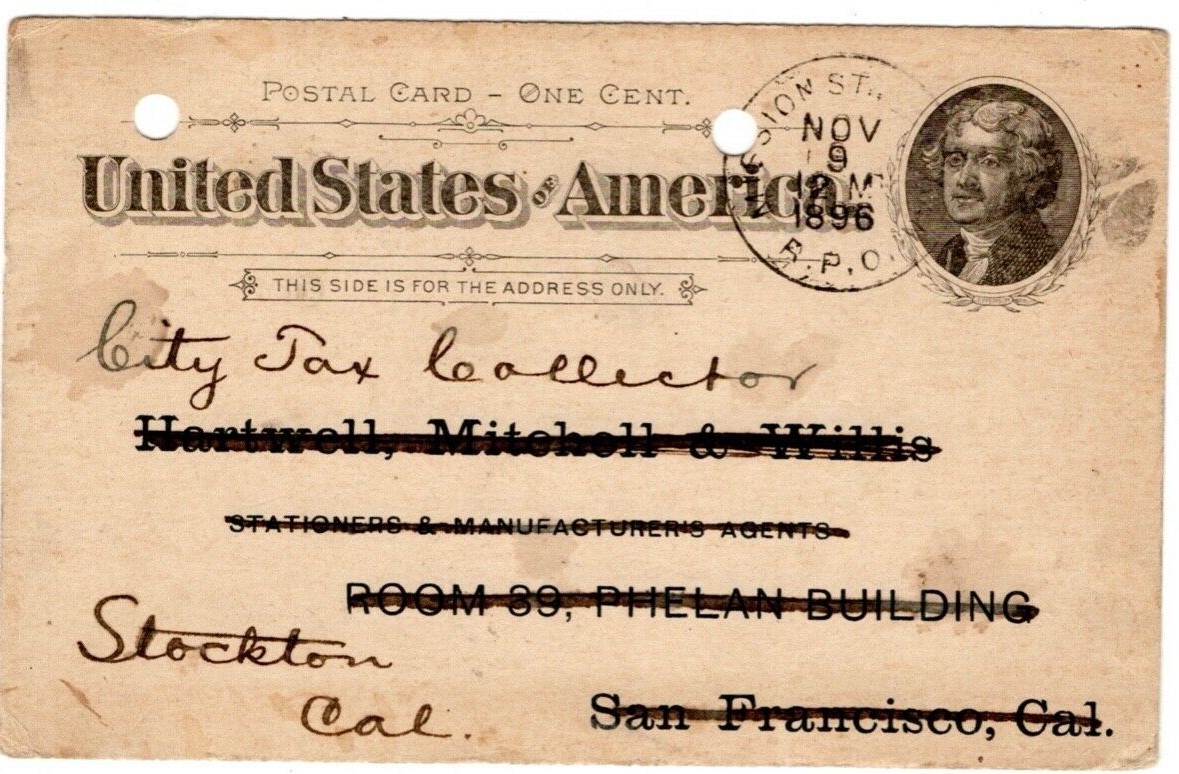 POSTAL CARD – ONE CENT.
United States OF America
THIS SIDE IS FOR THE ADDRESS ONLY.
SION ST.
NOV
9
M
1896
R.P.O.
City Tax Collector
Hartwell, Mitchell & Willis
STATIONERS & MANUFACTURER'S AGENTS
ROOM 39, PHELAN BUILDING
Stockton
Cal.
San Francisco, Cal.